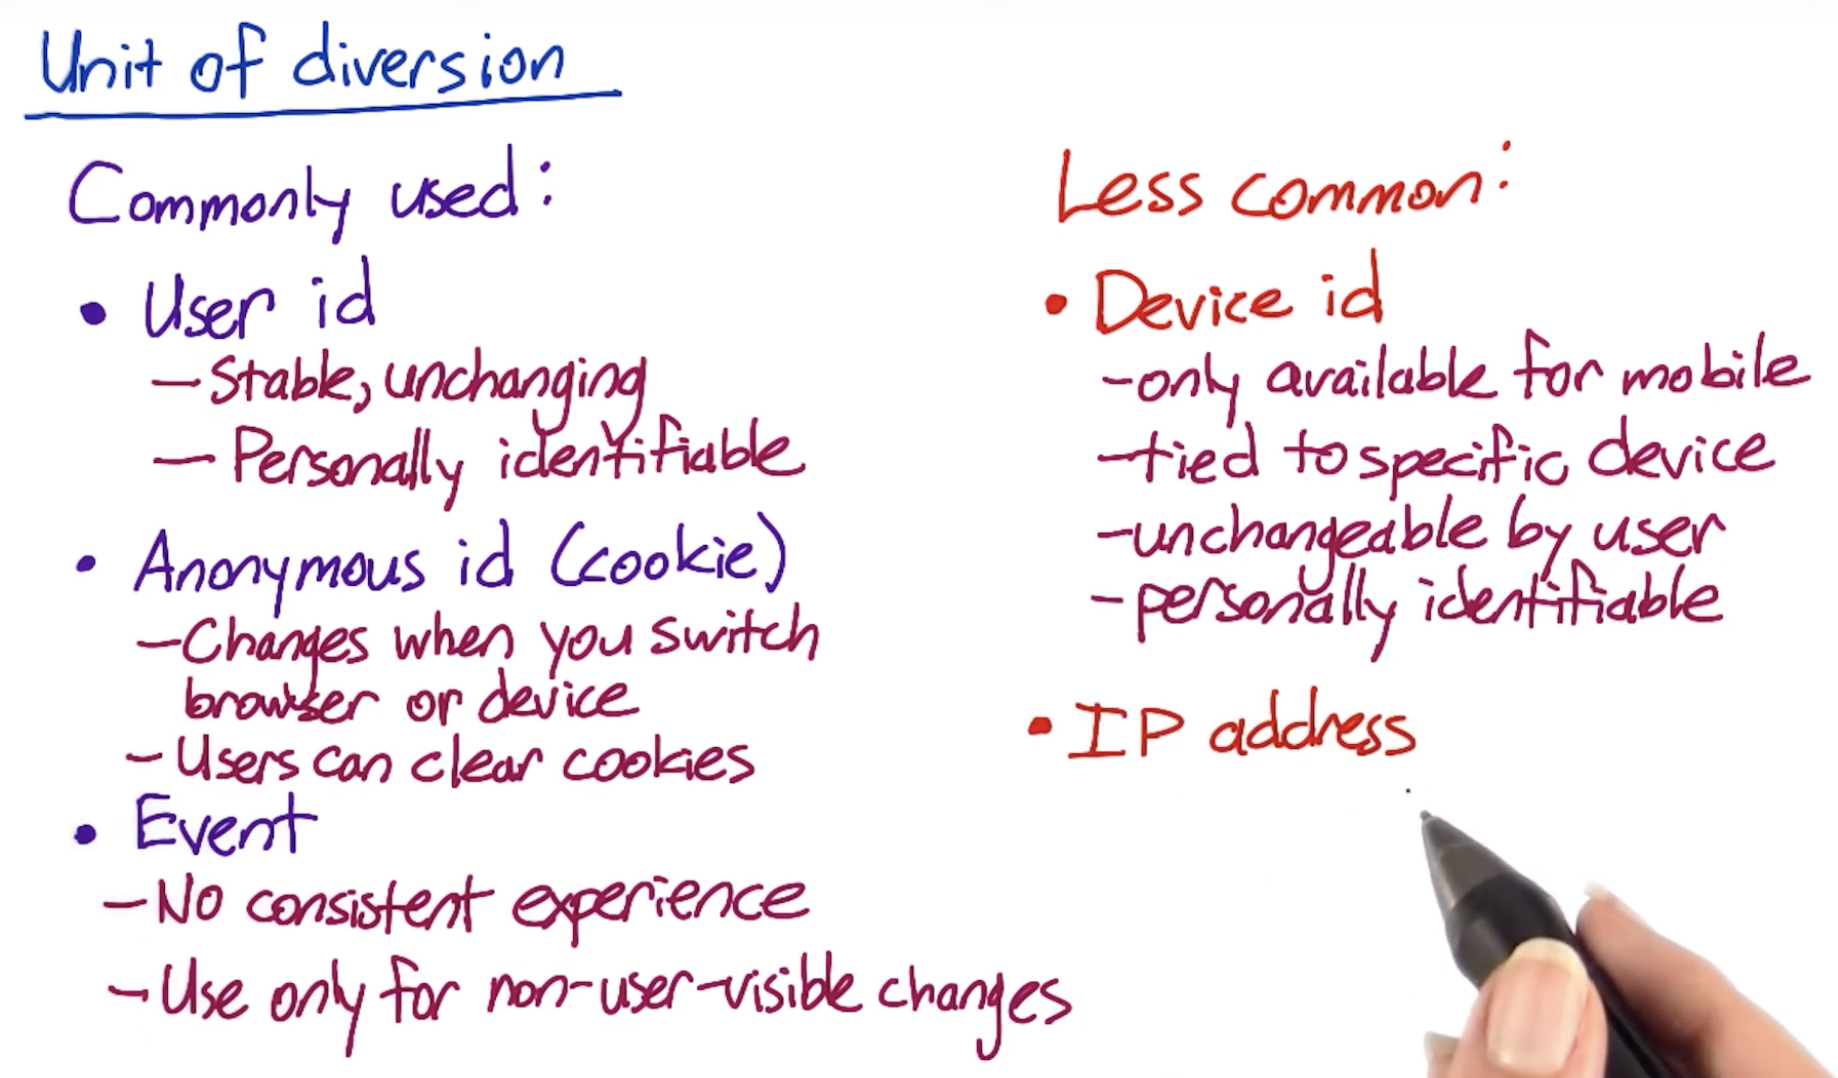 Unit of diversion
Commonly used:
• User id
– Stable, unchanging
– Personally identifiable
• Anonymous id (cookie)
– Changes when you switch
browser or device
– Users can clear cookies
• Event
– No consistent experience
– Use only for non-user-visible changes
Less common:
• Device id
– only available for mobile
– tied to specific device
– unchangeable by user
– personally identifiable
• IP address